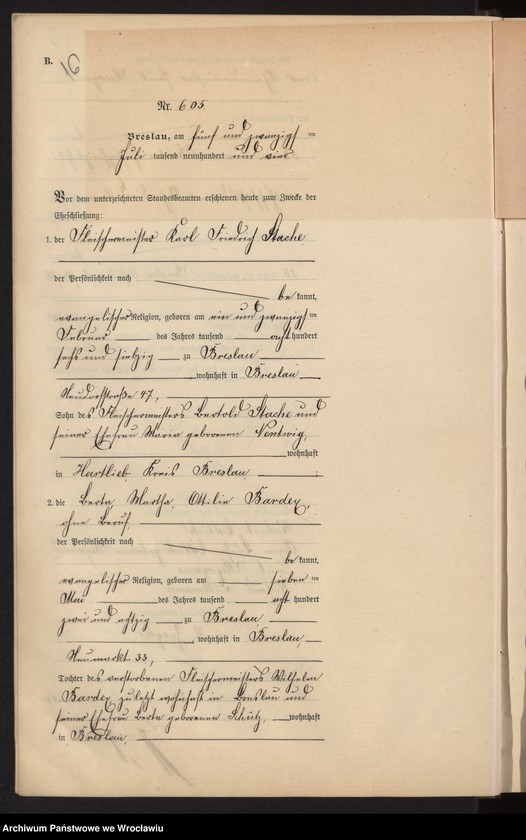 B.
16
Nr. 605
Breslau, am fünf und zwanzigsten
Juli tausend neunhundert und vier
Vor dem unterzeichneten Standesbeamten erschienen heute zum Zwecke der
Eheschließung:
1. der Fleischermeister Karl Friedrich Stache
der Persönlichkeit nach
be kannt,
evangelischer Religion, geboren am ein und zwanzigsten
Februar des Jahres tausend acht hundert
sechs und siebzig zu Breslau
wohnhaft in Breslau
Neudorfstraße 47,
Sohn des Fleischermeisters Bertold Stache und
seiner Ehefrau Maria geborenen Nentwig,
wohnhaft
in Hartlieb Kreis Breslau ;
2. die Berta Martha Ottilie Bardex,
ohne Beruf,
der Persönlichkeit nach
be kannt,
evangelischer Religion, geboren am sieben ten
Mai des Jahres tausend acht hundert
zwei und achtzig zu Breslau
, wohnhaft in Breslau,
Neumarkt 33,
Tochter des verstorbenen Fleischermeisters Wilhelm
Bardex zuletzt wohnhaft in Breslau und
seiner Ehefrau Berta geborenen Schütz, wohnhaft
in Breslau.
Archiwum Państwowe we Wrocławiu